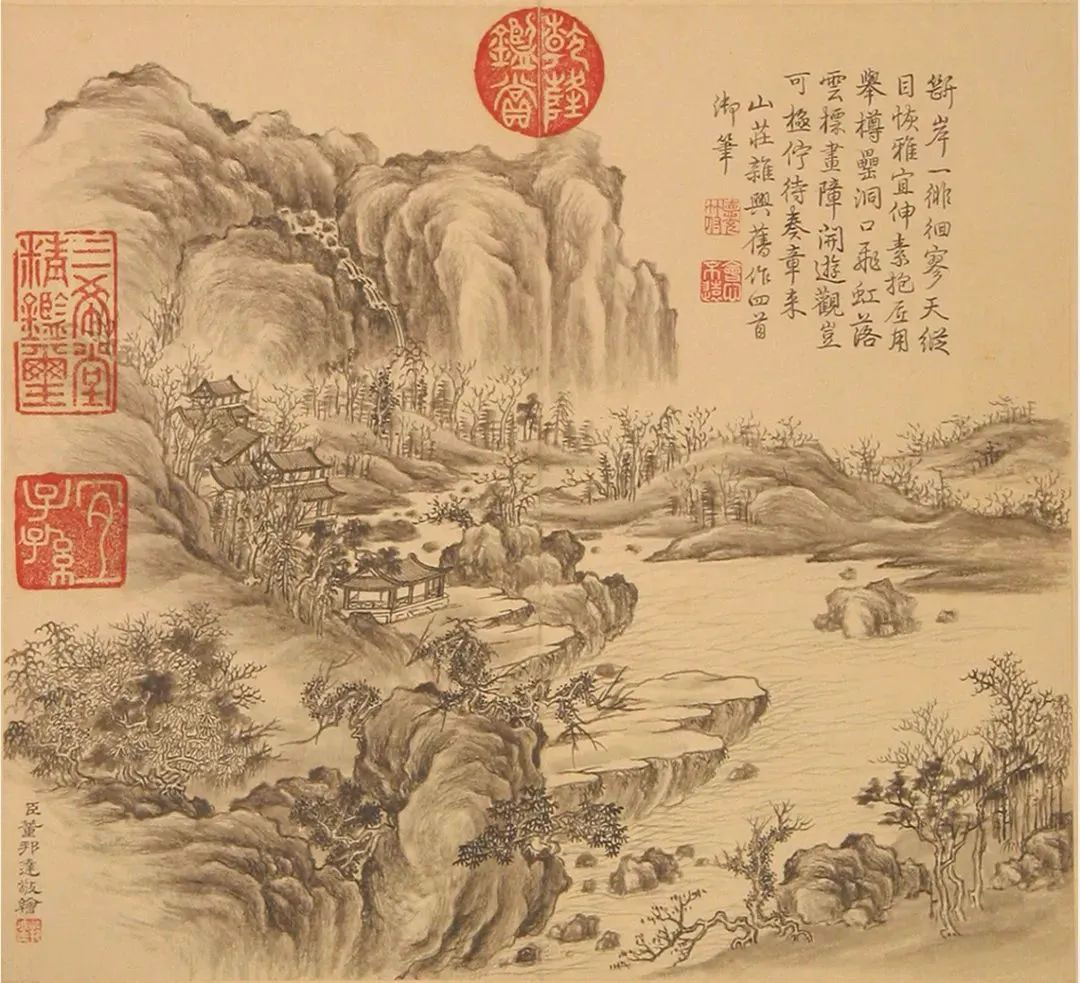 斷岸一徘徊寥天縱
目恢雅宜伸素抱底用
舉樽罍洞口飛虹落
雲標畫障開遊觀豈
可極佇待奏章来
山莊雜興舊作四首
御筆
會心不遠
乾隆鑑賞
三希堂精鑑璽
宜子孫
臣董邦達敬繪